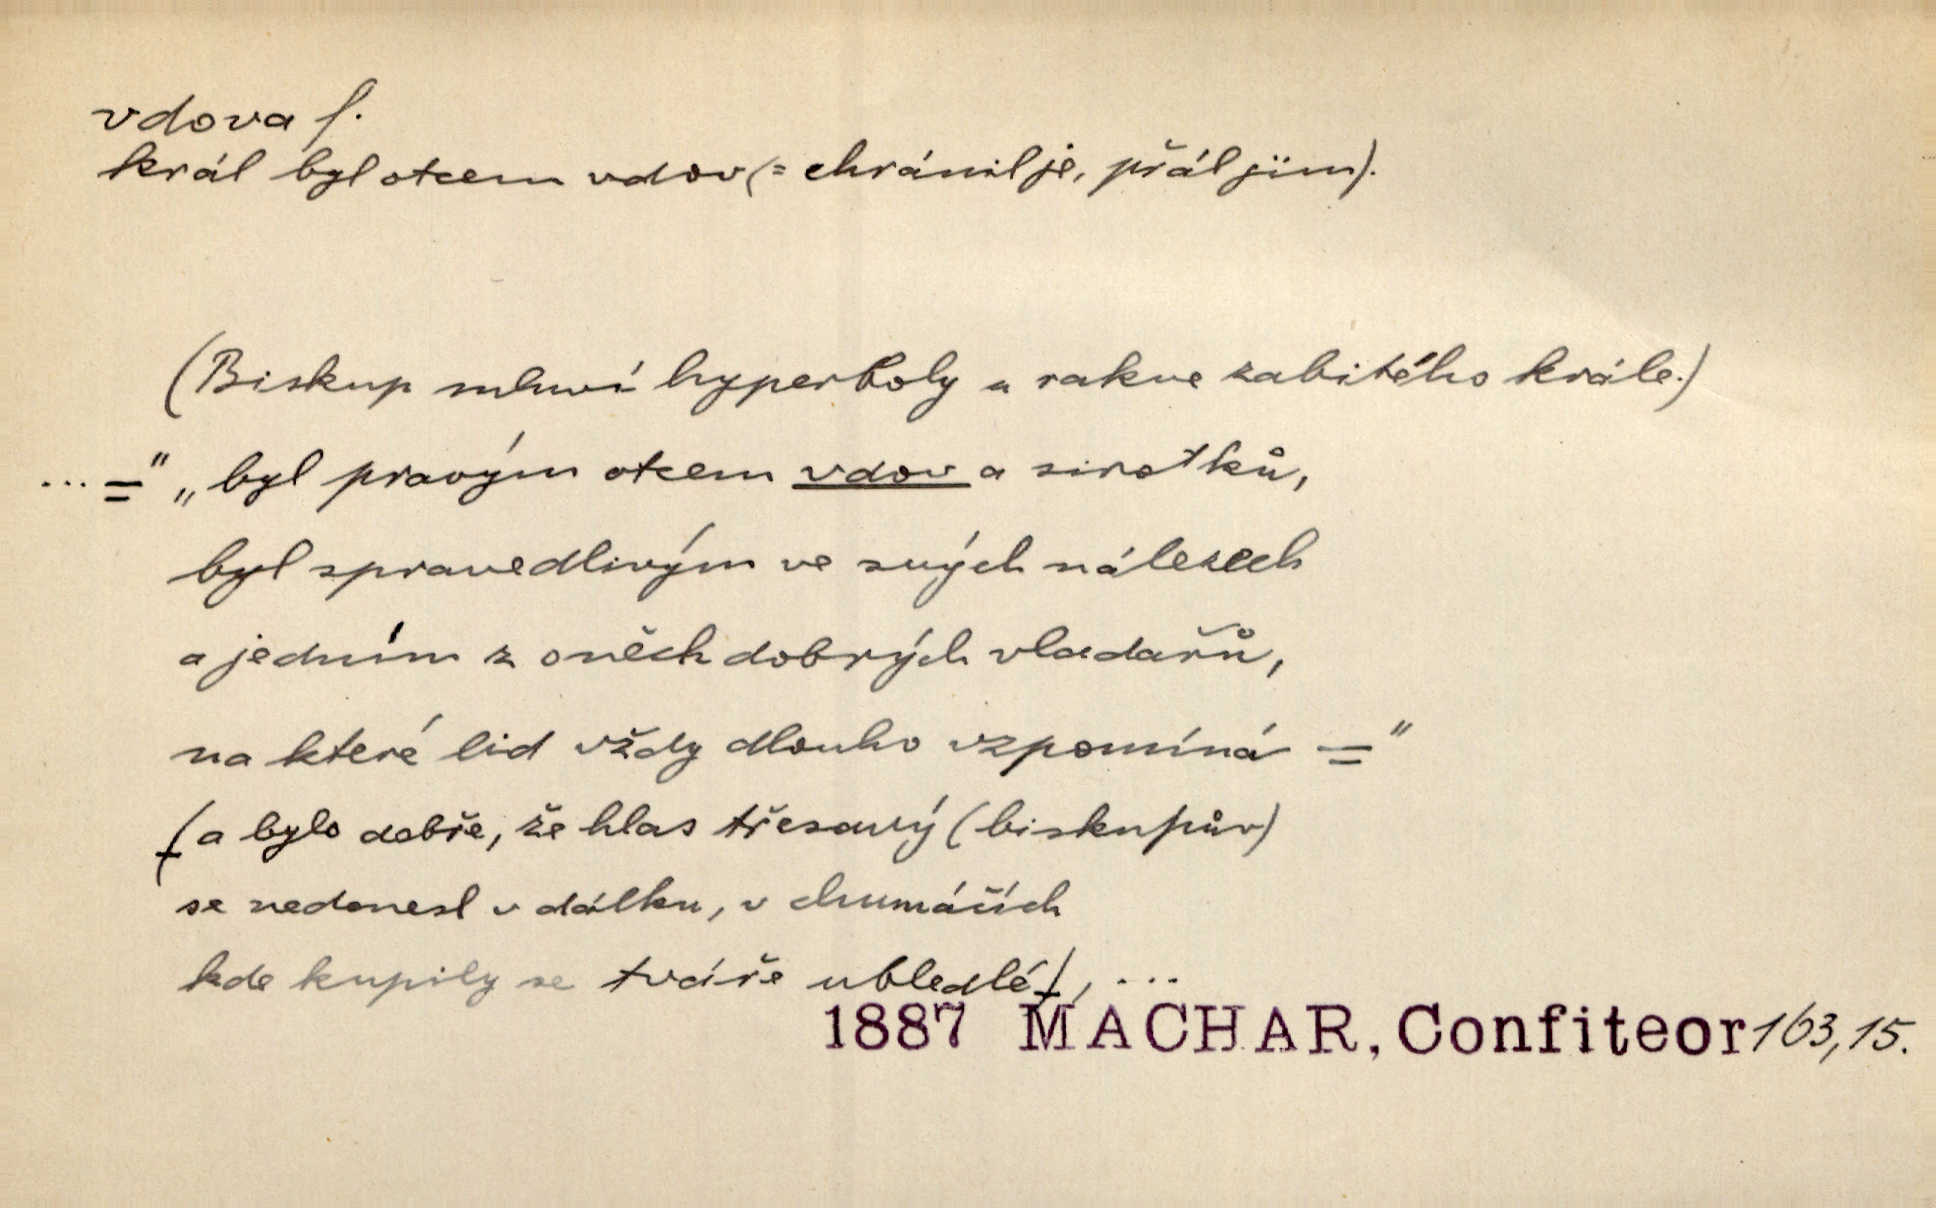 vdova f.
král byl otcem vdov (= chránil je, přál jim).
(Biskup mluví hyperboly u rakve zabitého krále.)
... =" „byl pravým otcem vdov a sirotků,
byl spravedlivým ve svých nálezech
a jedním z oněch dobrých vladařů,
na které lid vždy dlouho vzpomíná ="
(a bylo dobře, že hlas třesavý (biskupův)
se nedonesl v dálku, v chumáčích
kde kupily se tváře ubledlé), ...
1887 MACHAR, Confiteor 163,15.